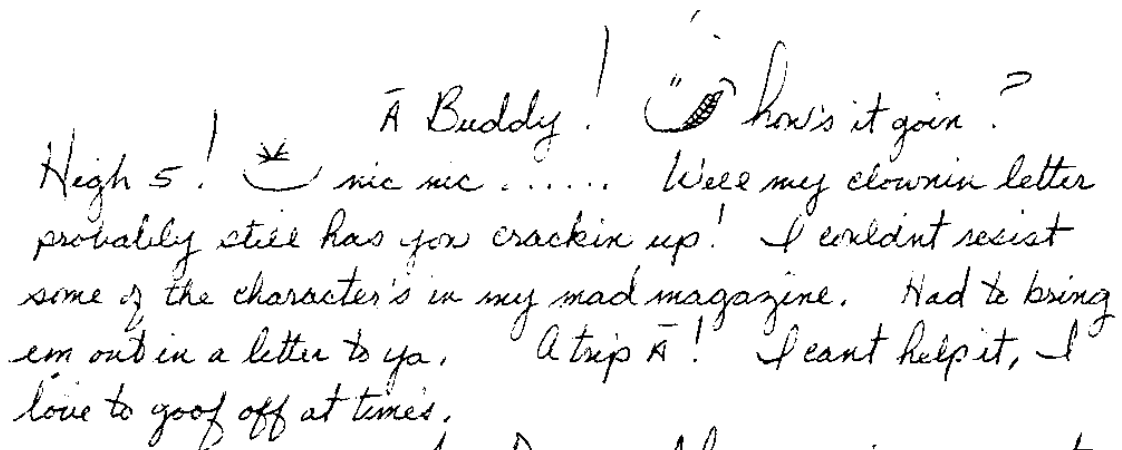 Ā Buddy! how's it goin?
High 5! nic nic ...... Well my clownin letter
probably still has you crackin up! I couldnt resist
some of the character's in my mad magazine. Had to bring
em out in a letter to ya. A trip Ā! I cant help it, I
love to goof off at time's.